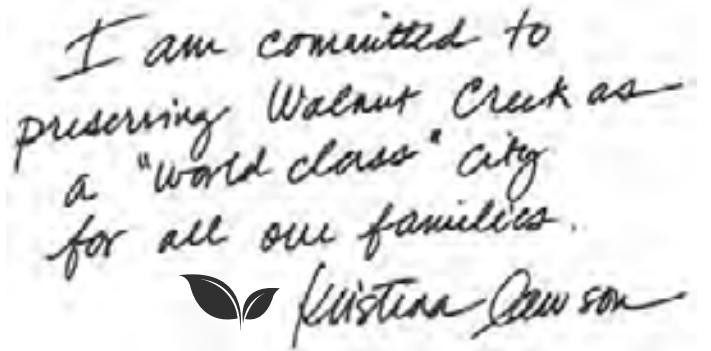 I am committed to
preserving Walnut Creek as
a "world class" city
for all our families.
Kristina Lawson